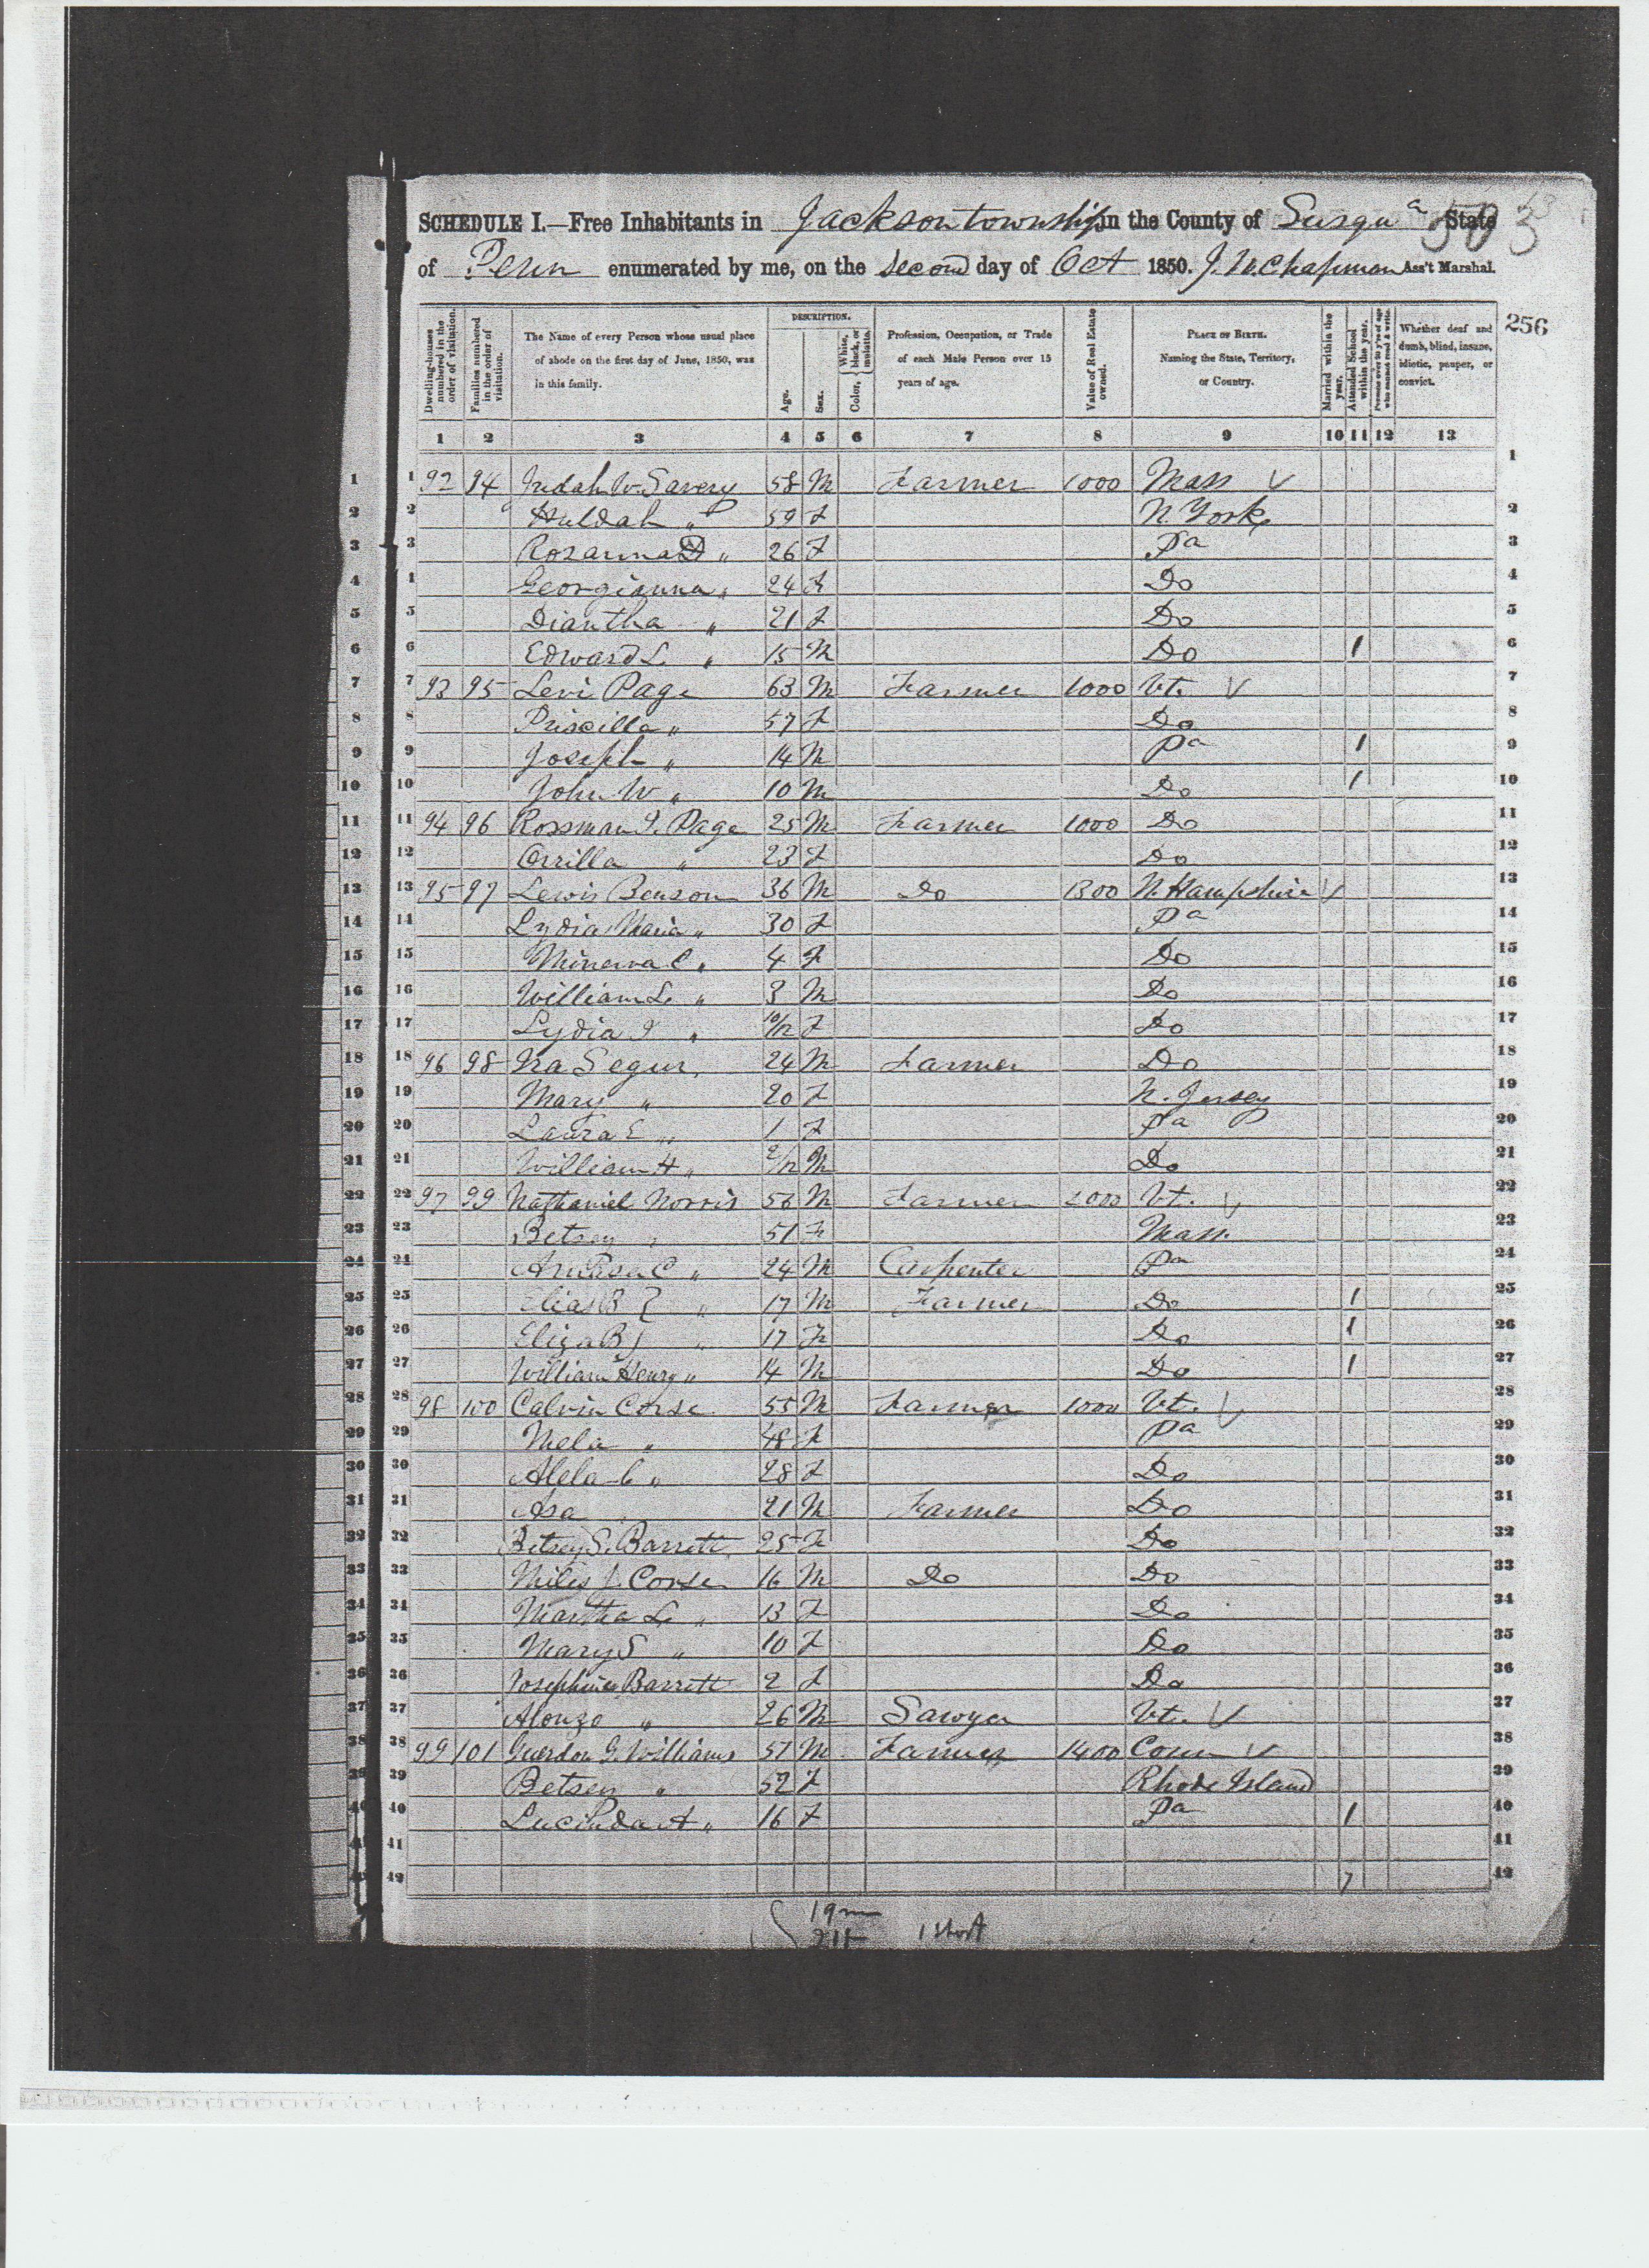 503
SCHEDULE I.—Free Inhabitants in Jackson township in the County of Susqua State
of Penn enumerated by me, on the Second day of Oct 1850. J. W. Chapman Ass't Marshal.
256
Dwelling-houses numbered in the order of visitation.
Families numbered in the order of visitation.
The Name of every Person whose usual place of abode on the first day of June, 1850, was in this family.
DESCRIPTION.
Age.
Sex.
Color, White, black, or mulatto.
Profession, Occupation, or Trade of each Male Person over 15 years of age.
Value of Real Estate owned.
PLACE OF BIRTH. Naming the State, Territory, or Country.
Married within the year.
Attended School within the year.
Persons over 20 y'rs of age who cannot read & write.
Whether deaf and dumb, blind, insane, idiotic, pauper, or convict.
1 2 3 4 5 6 7 8 9 10 11 12 13
1 1 92 94 Judah W. Savery 58 M Farmer 1000 Mass 1
2 2 Huldah " 59 F N. York 2
3 3 Rosanna " 26 F Pa 3
4 4 Georgianna " 24 F Do 4
5 5 Diantha " 21 F Do 5
6 6 Edward L. " 15 M Do 1 6
7 7 93 95 Levi Page 63 M Farmer 1000 Vt. 7
8 8 Priscilla " 57 F Do 8
9 9 Joseph " 14 M Pa 1 9
10 10 John W " 10 M Do 1 10
11 11 94 96 Rossman I. Page 25 M Farmer 1000 Do 11
12 12 Orrilla " 23 F Do 12
13 13 95 97 Lewis Benson 36 M Do 1300 N. Hampshire 13
14 14 Lydia Maria " 30 F Pa 14
15 15 Minerva C. " 4 F Do 15
16 16 William L. " 3 M Do 16
17 17 Lydia I " 10/12 F Do 17
18 18 96 98 Ira Segur 24 M Farmer Do 18
19 19 Mary " 20 F N. Jersey 19
20 20 Laura E " 1 F Pa 20
21 21 William H " 2/12 M Do 21
22 22 97 99 Nathaniel Norris 56 M Farmer 2000 Vt. 22
23 23 Betsey " 51 F Mass. 23
24 24 Amasa C " 24 M Carpenter Pa 24
25 25 Elias B } " 17 M Farmer Do 1 25
26 26 Eliza B } " 17 F Do 1 26
27 27 William Henry " 14 M Do 1 27
28 28 98 100 Calvin Corse 55 M Farmer 1000 Vt. 28
29 29 Mela " 48 F Pa 29
30 30 Alela C " 28 F Do 30
31 31 Asa " 21 M Farmer Do 31
32 32 Betsey S. Barrett 25 F Do 32
33 33 Miles J. Corse 16 M Do Do 33
34 34 Martha L. " 13 F Do 34
35 35 Mary S " 10 F Do 35
36 36 Josephine Barrett 2 F Do 36
37 37 Alonzo " 26 M Sawyer Vt. 37
38 38 99 101 Guerdon G. Williams 57 M Farmer 1400 Conn 38
39 39 Betsey " 52 F Rhode Island 39
40 40 Lucinda A " 16 F Pa 1 40
41 41 41
42 42 7 42
19 m
21 F 1 short